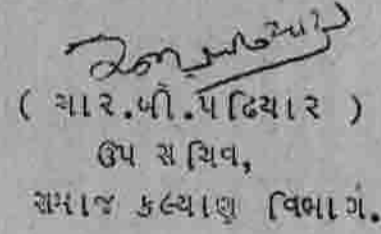 ( આર.બી.પઢિયાર )
ઉપ સચિવ,
સમાજ કલ્યાણ વિભાગ.